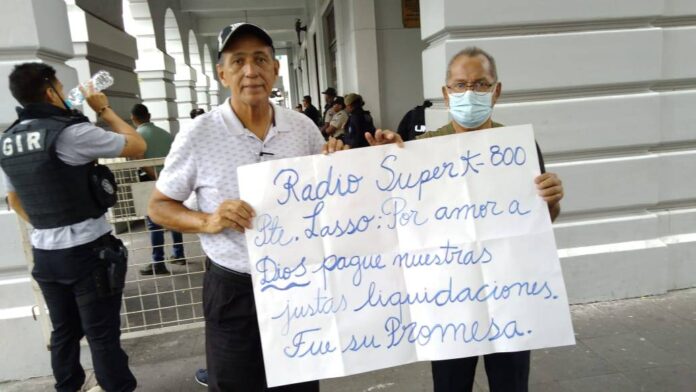 GIR
Radio Super K-800
Pte. Lasso: Por amor a
Dios pague nuestras
justas liquidaciones.
Fue su Promesa.